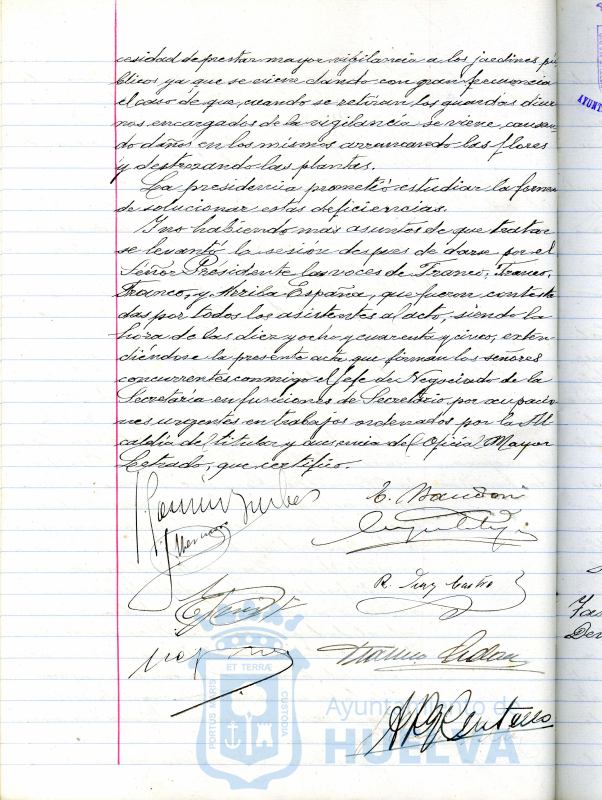 cesidad de prestar mayor vigilancia a los jardines pú
blicos ya que se viene dando con gran frecuencia
el caso de que, cuando se retiran los guardas diur
nos encargados de la vigilancia se viene, causan
do daños en los mismos arrancando las flores
y destrozando las plantas.
La presidencia prometió estudiar la forma
de solucionar estas deficiencias.
Y no habiendo más asuntos de que tratar
se levantó la sesión despues de darse por el
Señor Presidente las voces de Franco, Franco,
Franco, y Arriba España, que fueron contesta
das por todos los asistentes al acto, siendo la
hora de las diez y ocho y cuarenta y cinco, exten
diéndose la presente acta que firman los señores
concurrentes conmigo el Jefe de Negociado de la
Secretaria en funciones de Secretario por ocupacio
nes urgentes en trabajos ordenados por la Al
caldia del titular y ausencia del Oficial Mayor
Letrado, que certifico.
R. Diaz Castro
ET TERRÆ
PORTUS MARIS
CUSTODIA
Ayuntamiento de
HUELVA